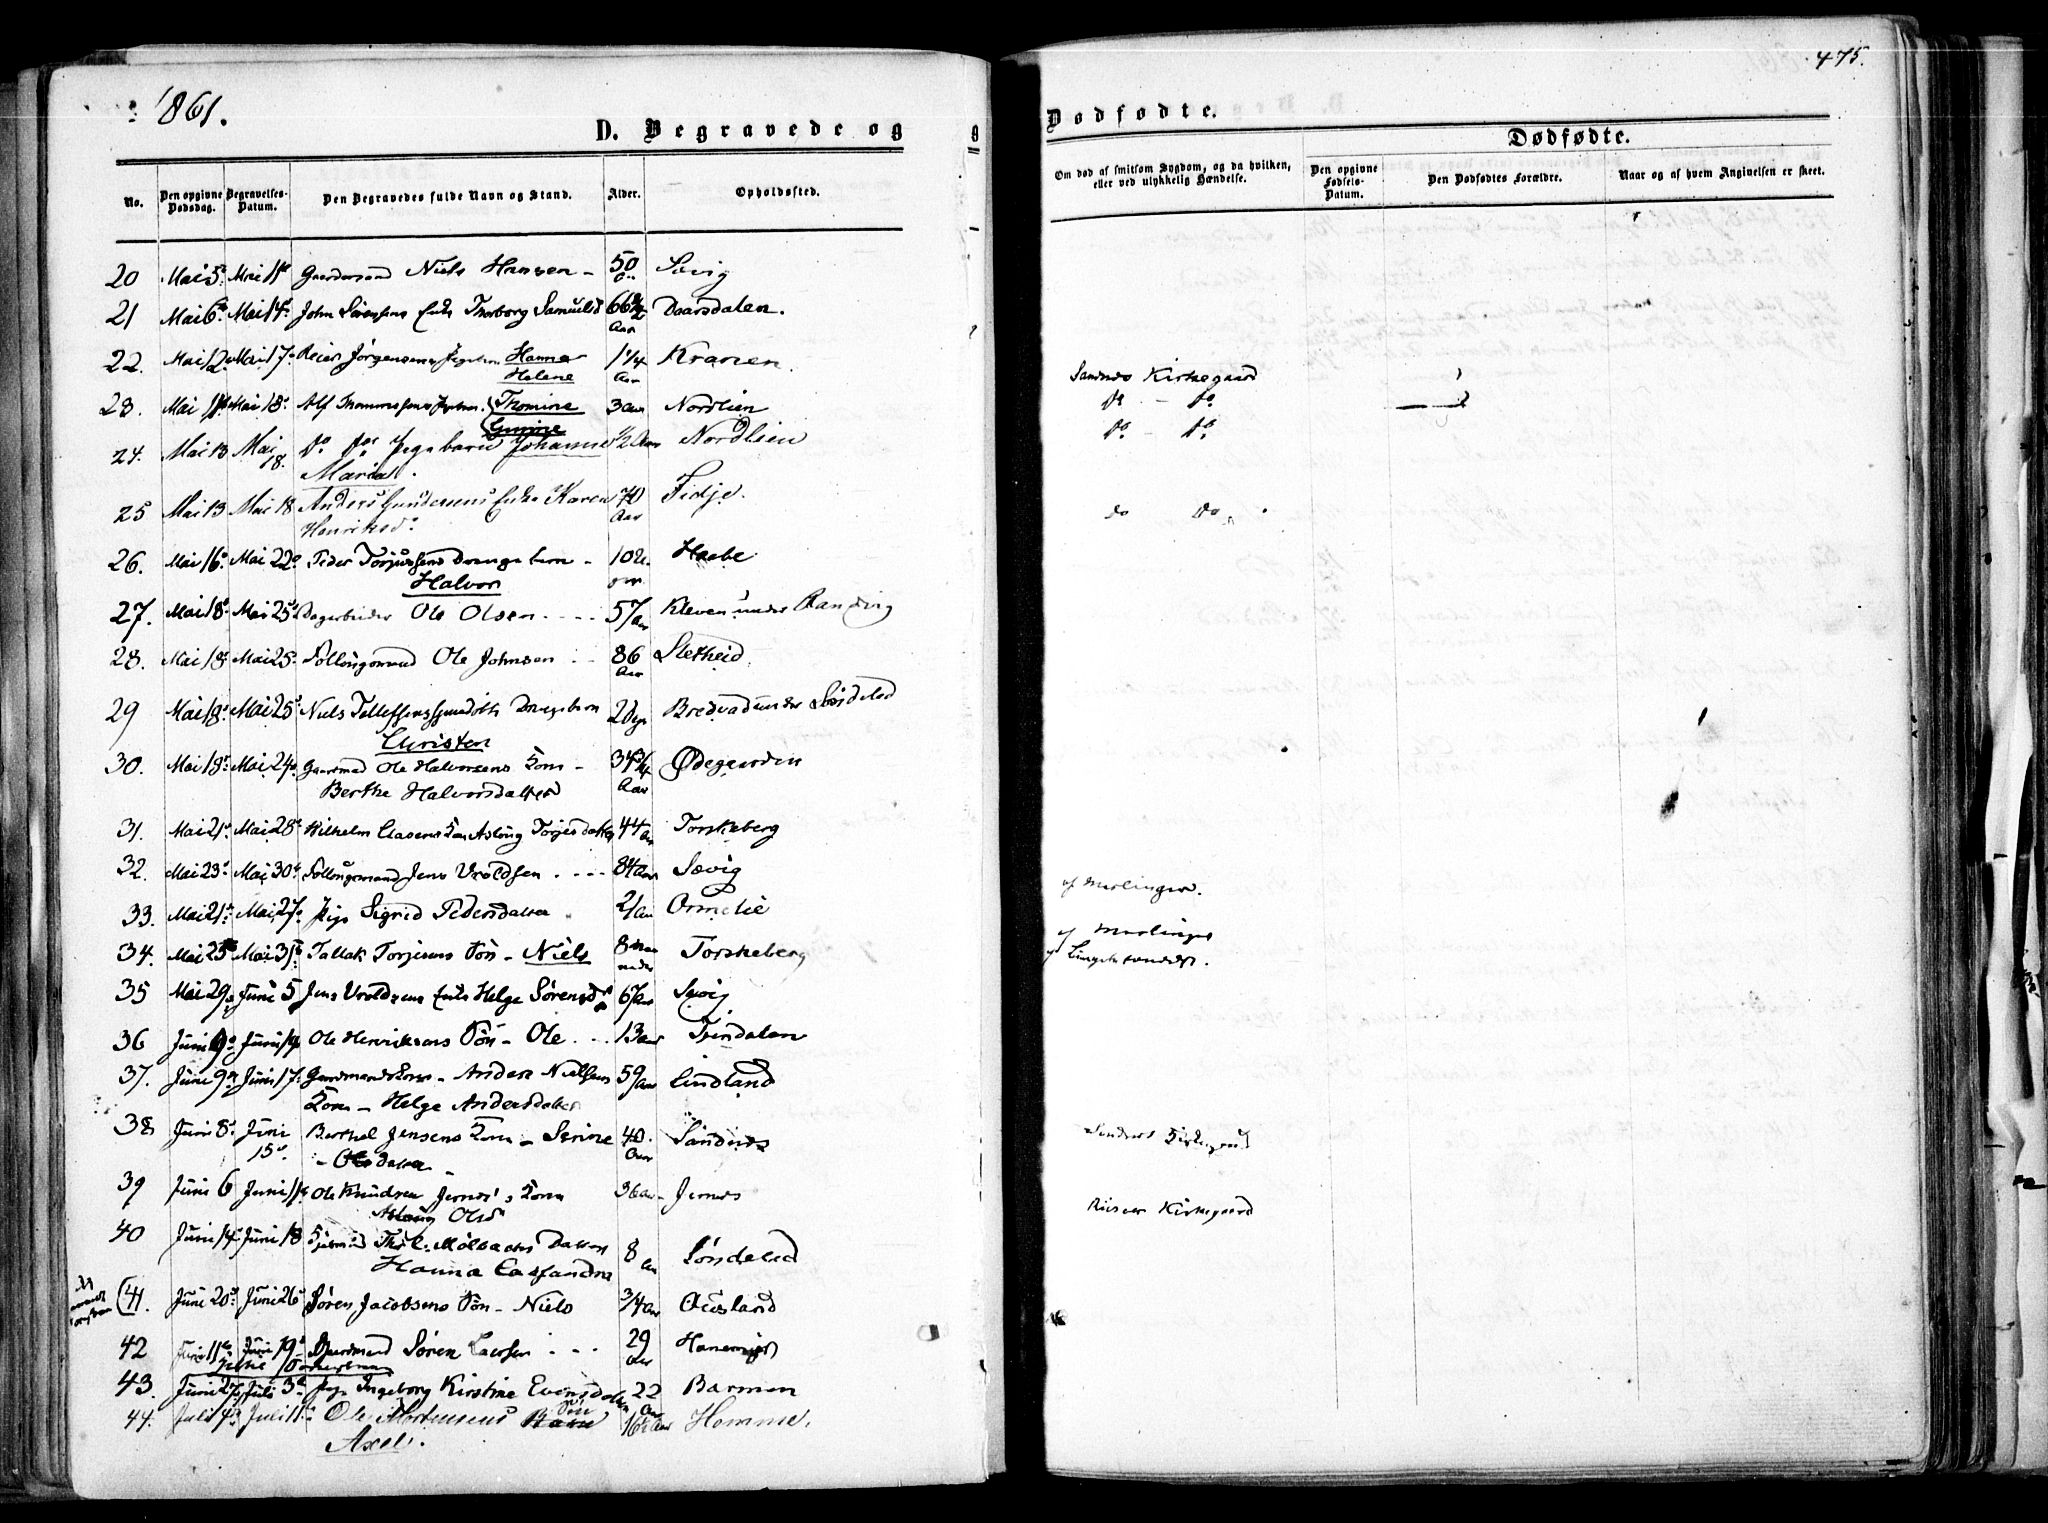 1861.
475.
D. Begravede og
Dødfødte.
Dødfødte.
No.
Den opgivne Dødsdag.
Begravelses-Datum.
Den Begravedes fulde Navn og Stand.
Alder.
Opholdssted.
Om død af smitsom Sygdom, og da hvilken, eller ved ulykkelig Hændelse.
Den opgivne Fødsels-Datum.
Den Dødfødtes Forældre.
Naar og af hvem Angivelsen er skeet.
20 Mai 5 Mai 11 Gaardmand Niels Hansen 50 Sævig
21 Mai 6 Mai 14 John Sørensens Enke Thorborg Samuelsd 66 1/2 Aar Daarsdalen.
22. Mai 12 Mai 17 Reier Jørgensens Pigebarn Hanna 1 1/4 Kranen Sandnes Kirkegaard
Helene Aar
23. Mai 11 Mai 18 Alf Thommesens Pigebarn Thomine 3 Aar Nordlien do - do
Gurine
24. Mai 13 Mai 18. do do Pigebarn Johanne 1/2 Aar Nordlien do - do
Maria.
25 Mai 13 Mai 18 Anders Gundersens Enke Karen 70 Aar Fidje. do do
Henriksd.
26. Mai 16 Mai 22 Peder Torjussens Drengebarn 10 Haabe
Halvor
27. Mai 18 Mai 25 Dagarbeider Ole Olsen 57 Aar Kleven under Randvig
28. Mai 18 Mai 25 Føllougsmand Ole Johnsen 86 Aar Sletheid
29 Mai 18 Mai 25 Niels Tellefsens Drengebarn 2 Dage Bredvad under Søndeled
Christen
30. Mai 18 Mai 24 Gaardmand Ole Halvorsens Kone 34 3/4 Aar Ødegaarden
Berthe Halvorsdatter
31. Mai 21 Mai 28 Wilhelm Clasens Kone Aslaug Torjesdatter 44 Aar Torskeberg
32. Mai 23 Mai 30 Føllougsmand Jens Vroldsen 84 Aar Sævig
33. Mai 21 Mai 27 Pige Sigrid Pedersdatter 21 Aar Ormelie af Meslinger.
34. Mai 25 Mai 31 Tallak Torjesens Søn - Niels 8 Maaneder Torskeberg af Meslinger
35 Mai 29 Juni 5 Jens Vroldsens Enke Helge Sørensd 67 Aar Sævig
36 Juni 9 Juni 14 Ole Henriksens Søn - Ole 13 Aar
37. Juni 9 Juni 17 Gaardmandskone - Anders Nielsens 59 Aar Lindland
Kone - Helge Andersdatter
38 Juni 8 Juni 15 Berthel Jensens Kone - Serine 40 Aar Sandnes Sandnes Kirkegaard
- Olsdatter -
39 Juni 6 Juni 11 Ole Knudsen Jernes's Kone 36 Aar Jernes Riisøer Kirkegaard
Aslaug Olsd
40 Juni 14 Juni 18 Datter 8 Aar Søndeled
Hanna Cassandra
(41. Juni 20 Juni 26 Søren Jacobsens Søn - Niels 3/4 Aar Ousland
42 Juni 11 Juni 19 Gaardmand Søren Larsen 29 Aar
43. Juni 27 Juli 3 Pige Ingeborg Kirstine Evensdatter 22 Aar Barmen
44. Juli 4 Juli 11 Ole Mortensens Søn 16 Aar Homme.
Axel.